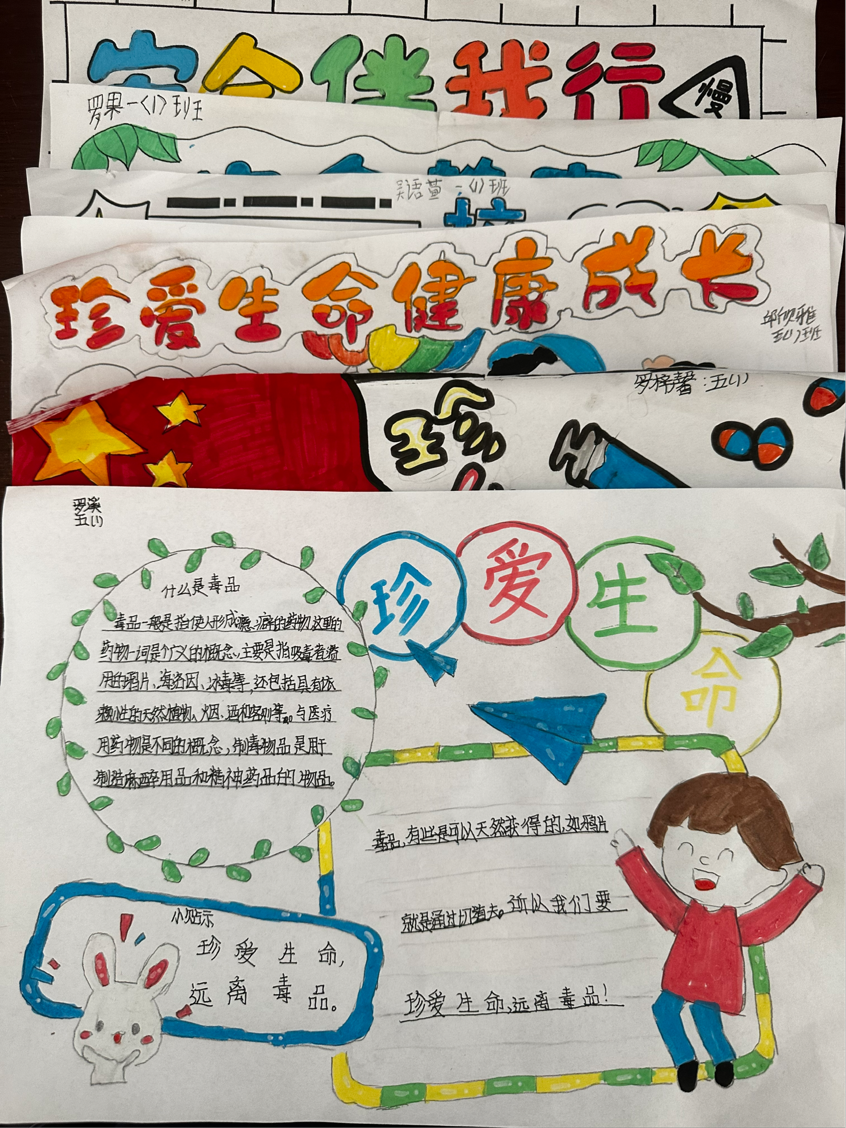 安全伴我行
慢
罗果一〈1〉班
吴语萱 一〈1〉班
珍爱生命健康成长
五〈1〉班
五〈1〉
珍
罗溪
五〈1〉
珍爱生命
什么是毒品
毒品一般是指使人形成瘾癖的药物,这里的
药物一词是个广义的概念,主要是指吸毒者滥
用的鸦片、海洛因、冰毒等,还包括具有依
赖性的天然植物、烟、酒和溶剂等。与医疗
用药物是不同的概念,制毒物品是用
制造麻醉用品和精神药品的物品。
毒品,有些是可以天然获得的,如鸦片
就是通过切
所以我们要
珍爱生命,远离毒品!
小贴示
珍爱生命,
远离毒品。